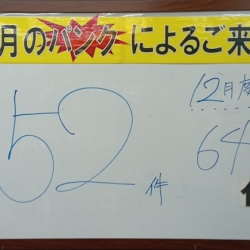 月のパンクによるご来
52件
12月度
64